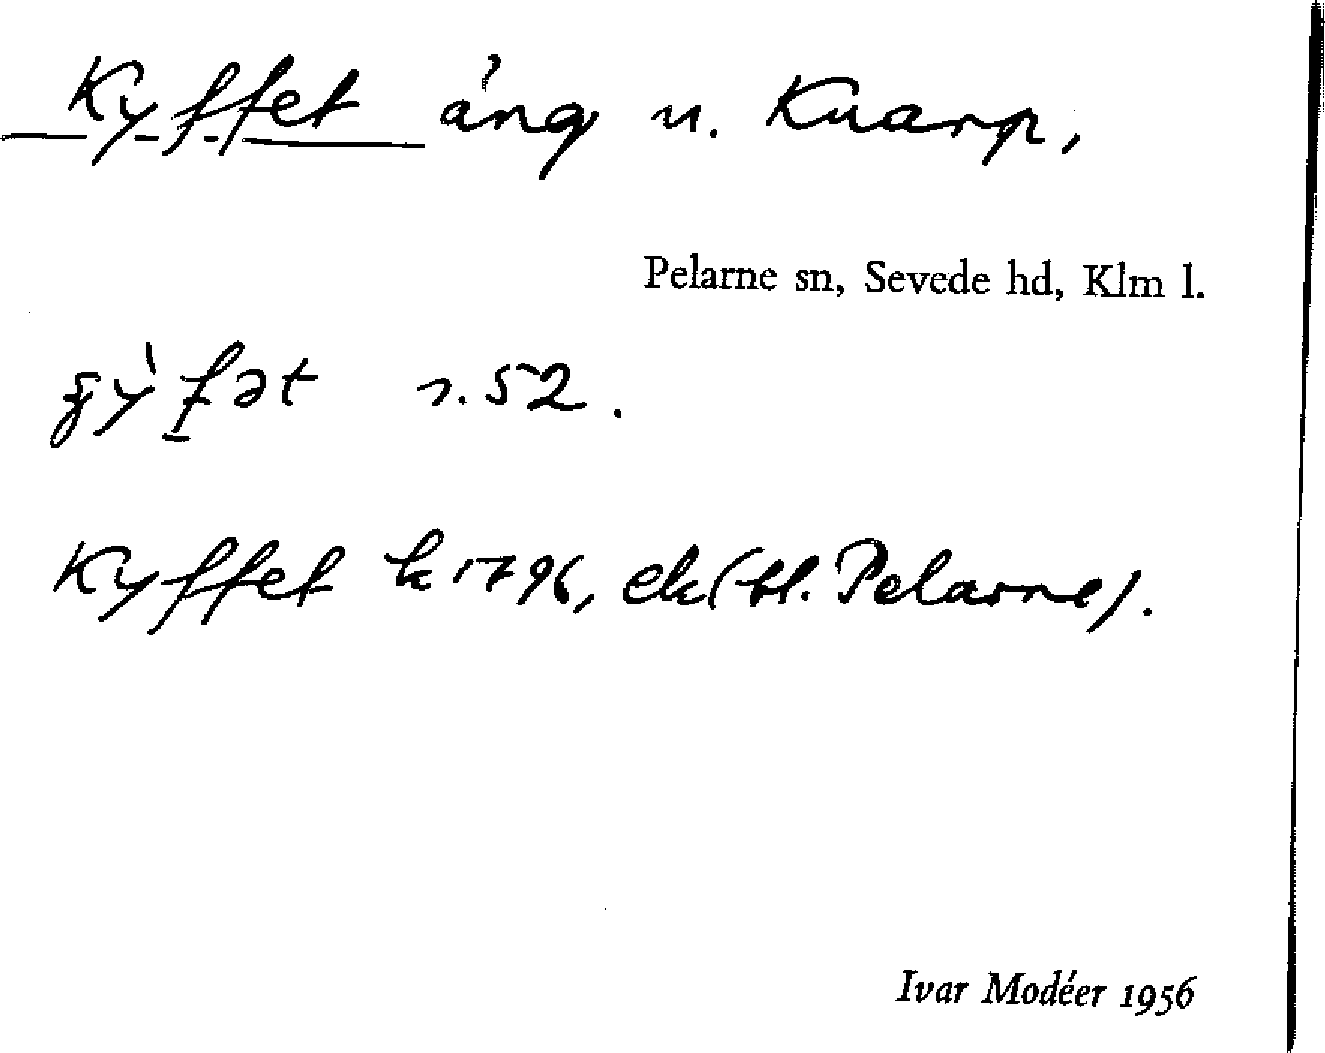 Kyffet äng u. Knarp,
Pelarne sn, Sevede hd, Klm l.
s. 52.
Kyffet k 1796, ek (bl. Pelarne).
Ivar Modéer 1956